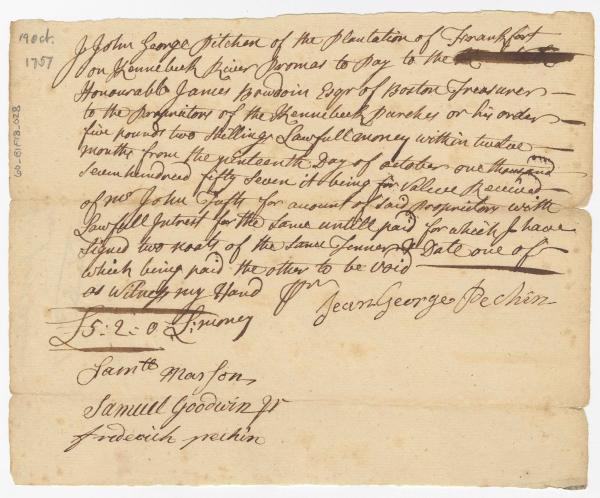 19 Oct.
1757
60-B1F7B-028
I John George Pitchen of the Plantation of Frankfort
on Kennebeck River Promas to Pay to the
Honourable James Bowdoin Esqr of Boston Treasurer
to the Propriators of the Kennebeck Parches or his order
five pounds two Shillings Lawfull money within twelve
months from the ninteenth Day of october one thousand
Seven hundred fifty Seven it being for Valiue Received
of mr John Tufts for account of Said Propriators with
Lawfull Intrest for the Same untill paid for which I have
Signed two noats of the Same Tenner & Date one of
which being paid the other to be Void
as Witness my Hand
Jean George Pechin
£5-2-0 L: money
Samll Marson
Samuel Goodwin Jr
frederick pechin